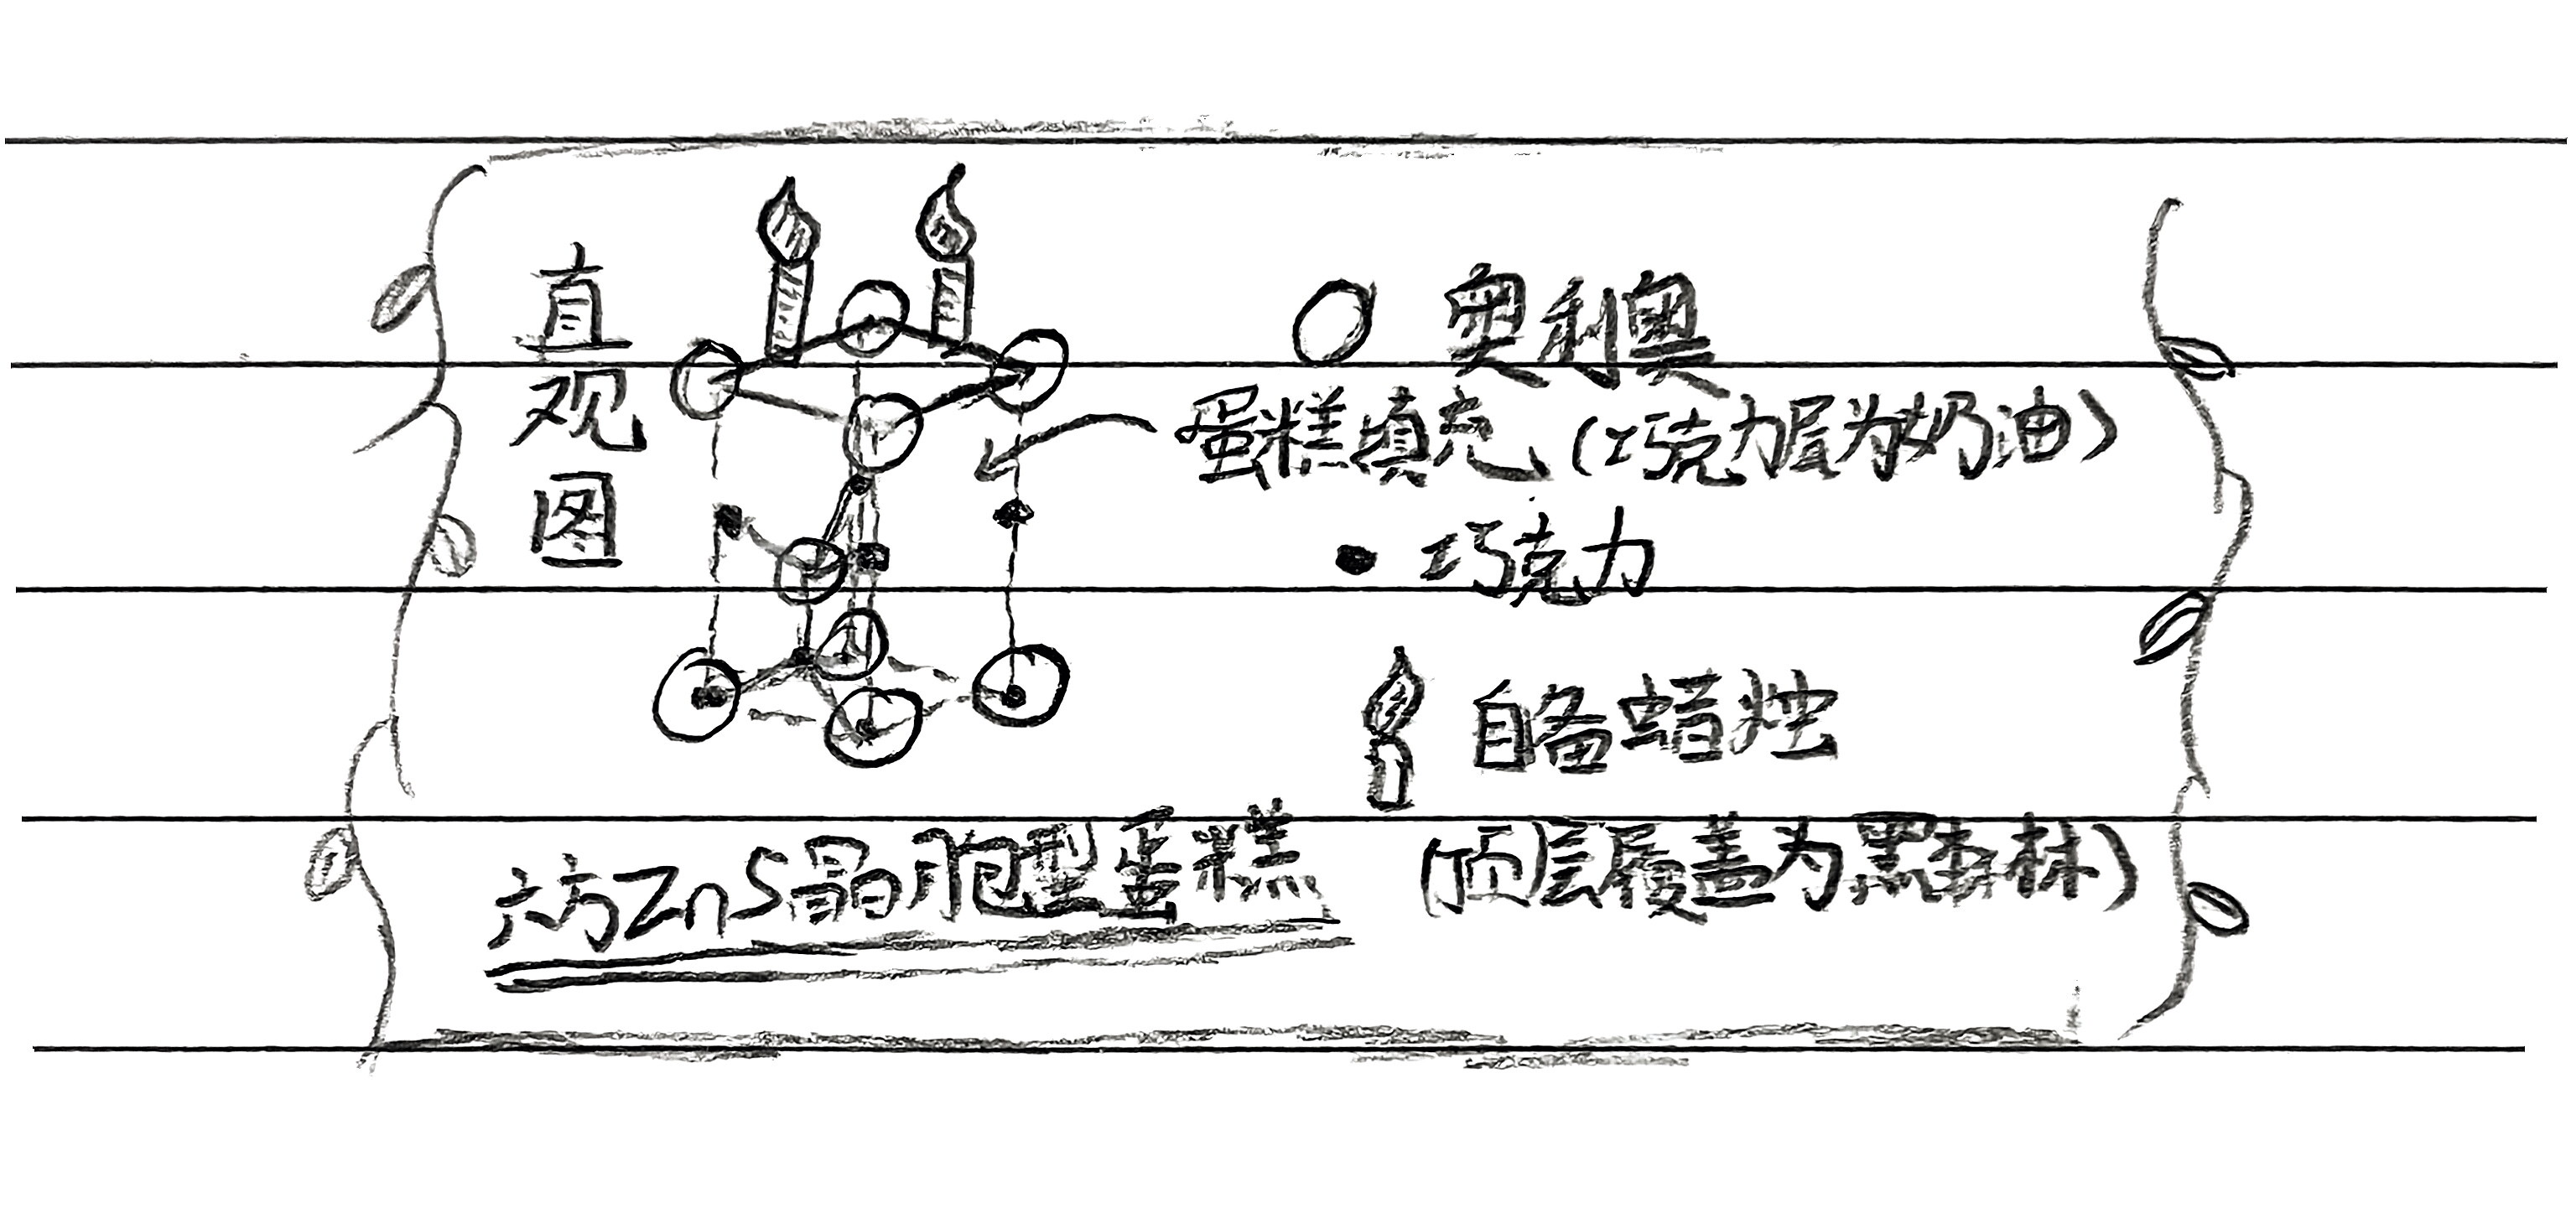 直观图
奥利奥
蛋糕填充（巧克力层为奶油）
巧克力
自备蜡烛
六方ZnS晶胞型蛋糕
（顶层覆盖为黑森林）